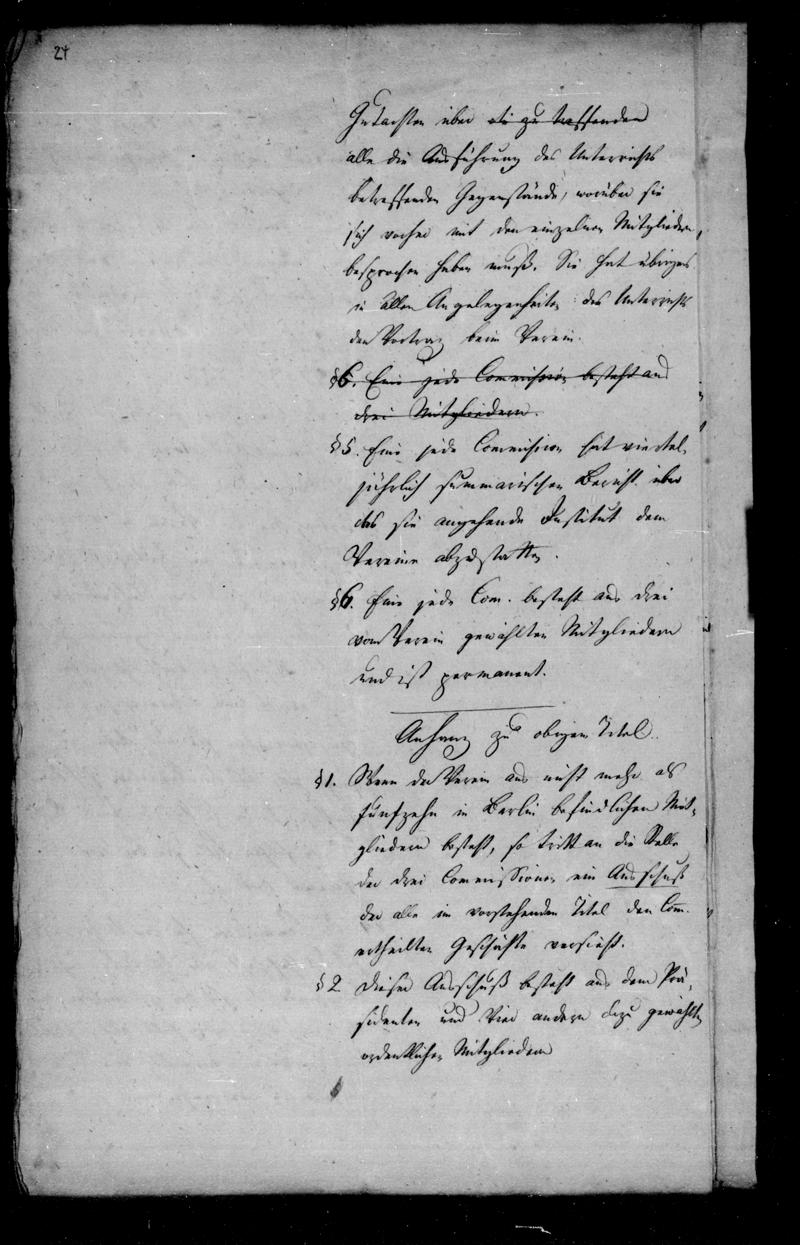 24
Gutachten über die zu treffenden
alle die Ausführung des Unterrichts
betreffenden Gegenstände, worüber sie
sich vorher mit den einzelnen Mitgliedern
besprochen haben muß. Sie hat übrigens
in allen Angelegenheiten des Unterrichts
den Vortrag beim Verein.
§6. Eine jede Commission besteht aus
drei Mitgliedern.
§5. Eine jede Commission hat viertel-
jährlich summarischen Bericht über
das sie angehende Institut dem
Vereine abzustatten.
§6. Eine jede Com. besteht aus drei
vom Verein gewählten Mitgliedern
und ist permanent.
Anhang zu obigen Titel.
§1. Wenn der Verein aus nicht mehr als
fünfzehn in Berlin befindlichen Mit-
gliedern besteht, so tritt an die Stelle
der drei Commissionen ein Ausschuß
der alle im vorstehenden Titel den Com.
ertheilten Geschäfte versieht.
§2 Dieser Ausschuß besteht aus dem Prä-
sidenten und vier andern dazu gewählten
ordentlichen Mitgliedern